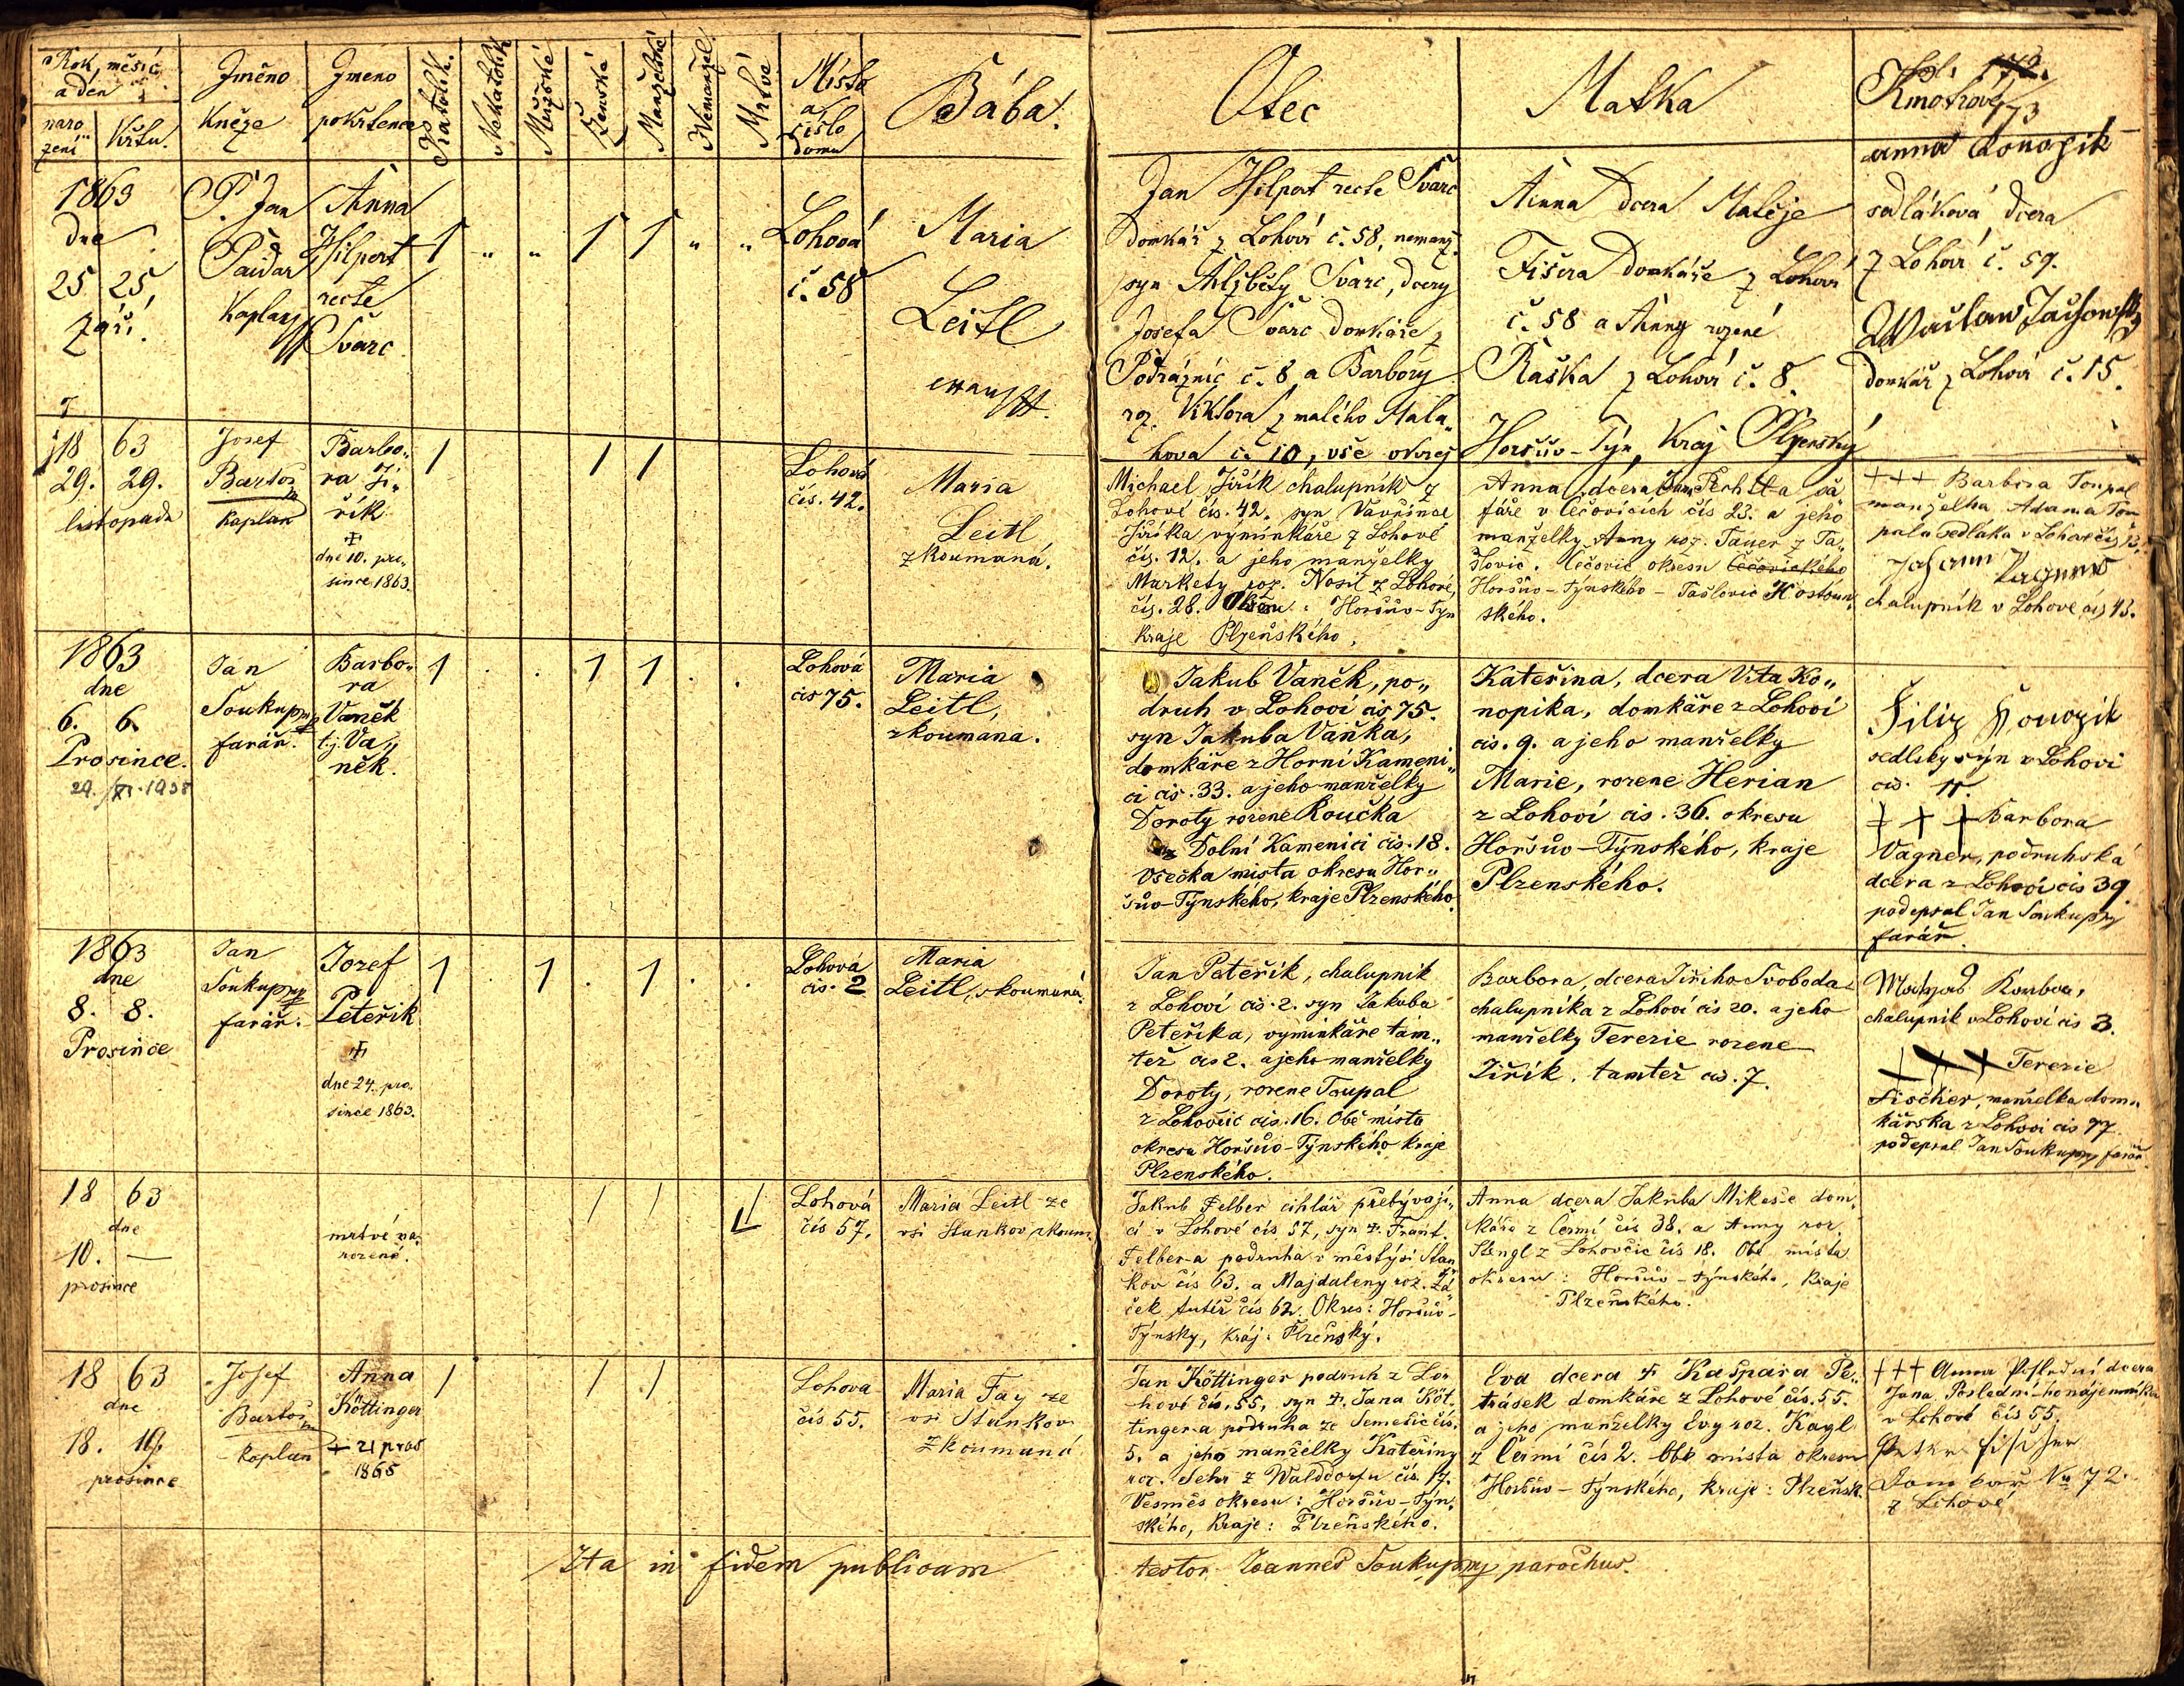 Rok, měsíc
a den
naro
zení
Křtu.
Jméno
Kněze
Jmeno
pokřtence
Katolík.
Nekatolík
Mužské
Ženské
Manželské
Nemanžel.
Mrtvé
Místo
a
číslo
domu
Bába.
Otec
Matka
Fol.
Kmotrové
173
1863
dne
25 25
září
P. Jan
Paidar
Kaplan
Anna
Hilpert
recte
Švarc
1 " " 1 1 " "
Lohová
č. 58
Maria
Leitl
Jan Hilpert recte Švarc
Domkář z Lohoví č. 58, nemanž.
syn Alžběty Švarc, dcery
Josefa Švarc Domkáře z
Podražnic č. 8 a Barbory
roz. Viktora z malého Mala„
hova č. 10, vše okres
Anna dcera Matěje
Fišera domkáře z Lohoví
č. 58 a Anny rozené
Raška z Lohoví č. 8.
Horšův-Týn, Kraj Plzenský
Anna Konopik
sedláková dcera
z Lohoví č. 59.
domkář z Lohoví č. 15.
18 63
29. 29.
listopadu
Josef
Bartoš
kaplan
Barbo„
ra Ji„
řík
dne 10. pro„
since 1863.
1 1 1
Lohová
čís. 42.
Maria
Leitl
zkoumaná.
Michael Jiřík chalupník z
Lohové čís. 42. syn Vavřince
Jiříka výminkáře z Lohové
čís. 12. a jeho manželky
Markety roz. Nosil z Lohové,
čís. 28. Okresu: Horšův-Týn
kraje Plzeňského.
Anna, dcera Jana Pechtl-a ša
fáře v Čečovicích čís 23. a jeho
manželky Anny roz. Tauer z Ta„
šlovic. Čečovic okresu Čečovického
Horšův-Týnského - Tašlovic Hostoun„
ského.
+++ Barbora Toupal
manželka Adama Tou
pala sedláka v Lohové čís 13.
Johann Wagner
chalupník v Lohové čís 43.
1863
dne
6. 6.
Prosince.
29./XI. 1938
Jan
Soukup
farář.
Barbo„
ra
Vaněk
t.j. Va„
něk.
1 . . 1 1 . .
Lohová
čis 75.
Maria
Leitl,
zkoumana.
Jakub Vaněk, po„
druh v Lohoví čis 75.
syn Jakuba Vaňka,
domkáře z Horní Kameni„
ci čis. 33. a jeho manželky
Doroty rozene Roučka
z Dolní Kamenici čis. 18.
Všečka mista okresu Hor„
šův-Týnského, kraje Plzenského
Kateřina, dcera Vita Ko„
nopika, domkáře z Lohoví
čis. 9. a jeho manželky
Marie, rozene Herian
z Lohoví čis. 36. okresu
Horšův-Týnského, kraje
Plzenského.
Filip Konopik
sedlsky syn v Lohovi
čis. 11.
+ + + Barbora
Vagner, podruhská
dcera z Lohoví čis 39.
podepsal Jan Soukup
farář.
1863
dne
8. 8.
Prosince
Jan
Soukup
farář.
Jozef
Peteřík
dne 24. pro„
since 1863.
1 . 1 . 1 . .
Lohová
čis. 2
Maria
Leitl, zkoumaná.
Jan Peteřík, chalupník
z Lohoví čis. 2. syn Jakuba
Peteříka, vyminkáře tam„
též čis 2. a jeho manželky
Doroty, rozene Toupal
z Lohovčic čis. 16. Obě místa
okresu Horšův-Týnského kraje
Plzenského.
Barbora, dcera Jiřího Svoboda
chalupníka z Lohoví čis 20. a jeho
manželky Terezie rozene
Jiřík. tamtež čis. 7.
chalupník v Lohoví čis 3.
+ + + Terezie
Fischer, manželka dom„
kářska z Lohovi čis 77
podepsal Jan Soukup farář.
18 63
dne
10. —
prosince
mrtvé na„
rozené.
1 1 1
Lohová
čís 57.
Maria Leitl ze
vsi Stankov zkoum.
Jakub Felber cihlář přebývají„
cí v Lohové čís 57, syn Frant.
Felber-a podruha v městysi Stan
kov čís 63. a Majdaleny roz. Žá
ček tutéž čís 62. Okres: Horšův-
Týnsky, kraj: Plzeňský.
Anna dcera Jakuba Mikeše dom„
káře z Čermí čís 38. a Anny roz.
Stengl z Lohovčic čís 18. Obě místa
okresu: Horšův-Týnského, kraje
Plzeňského.
18 63
dne
18. 19.
prosince
Josef
Bartoš
kaplan
Anna
Köttinger
+ 21 pros
1865
1 1 1
Lohova
čís 55.
Maria Fay ze
vsi Stankov
zkoumaná
Jan Köttinger podruh z Lo„
hové čís. 55, syn Jana Köt„
tinger-a podruha ze Semešic čís.
5. a jeho manželky Kateřiny
roz. Sehr z Walddorfu čís. 17.
Vesměs okresu: Horšův-Týn„
ského, kraje: Plzeňského.
Eva dcera Kašpara Pe„
trásek domkáře z Lohové čís. 55.
a jeho manželky Evy roz. Kagl
z Čermí čís 2. Obě místa okresu
Horšův-Týnského, kraje: Plzeňsk.
+++ Anna Poslední dcera
Jana Poslední-ho nájemníka
v Lohové čís 55.
Peter Fischer
No 72.
z Lohové
Ita in fidem publicam
testor Joannes Soukup parochus.